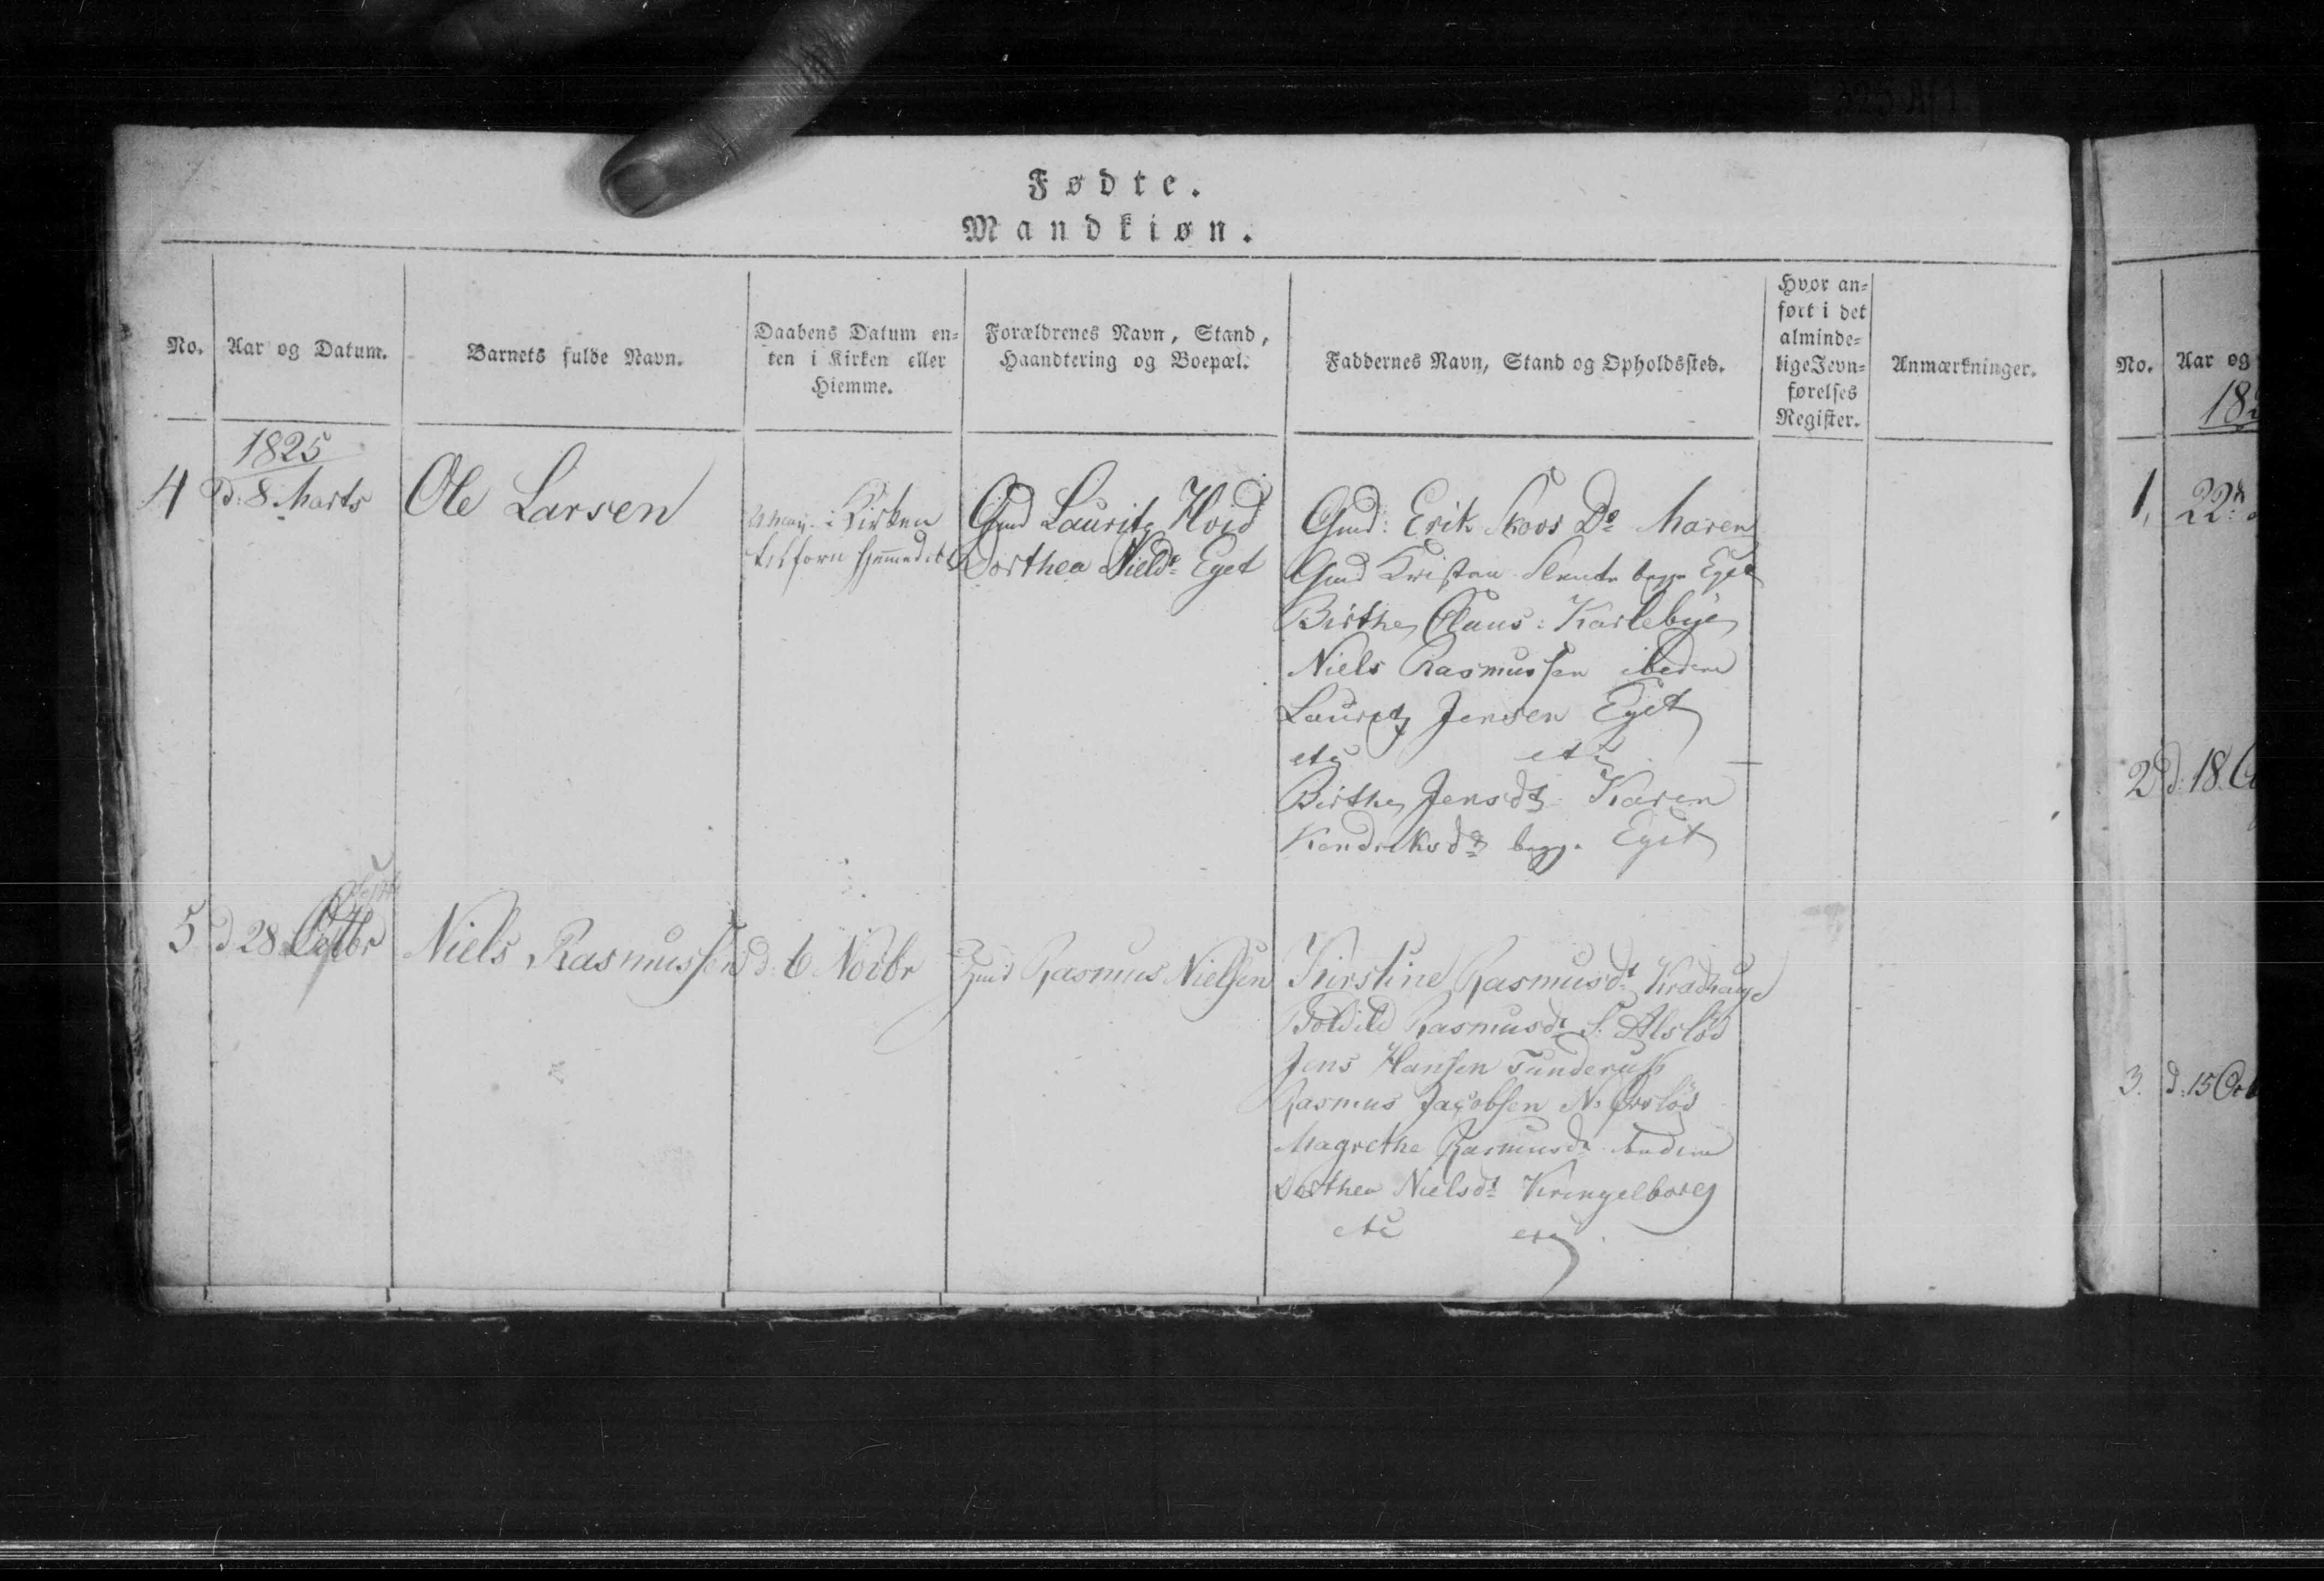 Fødte.
Mandkiøn.
No.
Aar og Datum.
Barnets fulde Navn.
Daabens Datum en-
ten i Kirken eller
Hiemme.
Forældrenes Navn, Stand,
Haandtering og Boepæl.
Faddernes Navn, Stand og Opholdssted.
Hvor an-
ført i det
alminde-
lige Jevn-
førelses
Register.
Anmærkninger.
1825
4
d: 8 Marts
Ole Larsen
i Kirken
tilforn hjemmedøbt
Gmd Lauritz Hvid
Dorthea Nielsd Eget
Gmd: Erik Skovs Do Maren
Gmd Kristen begge Eget
Birthe Claus: Karlebye
Niels Rasmussen ibidem
Lauritz Jensen Eget
etc etc
Birthe Jensdt Karen
Hendriksdt begge Eget
5
d 28 Octbr
Niels Rasmussen
d. 6 Novbr
Gmd Rasmus Nielsen
Kirstine Rasmusdt Kradhauge
Bodild Rasmusdt S. Alsløv
Jens Hansen Tunderup
Rasmus Jacobsen N. Ørsløv
Magrethe Rasmusdt ibidem
Dorthea Nielsdt Kringelborg
etc etc
No.
Aar og
18
1,
22:
2
d: 18
3.
d: 15 Oct